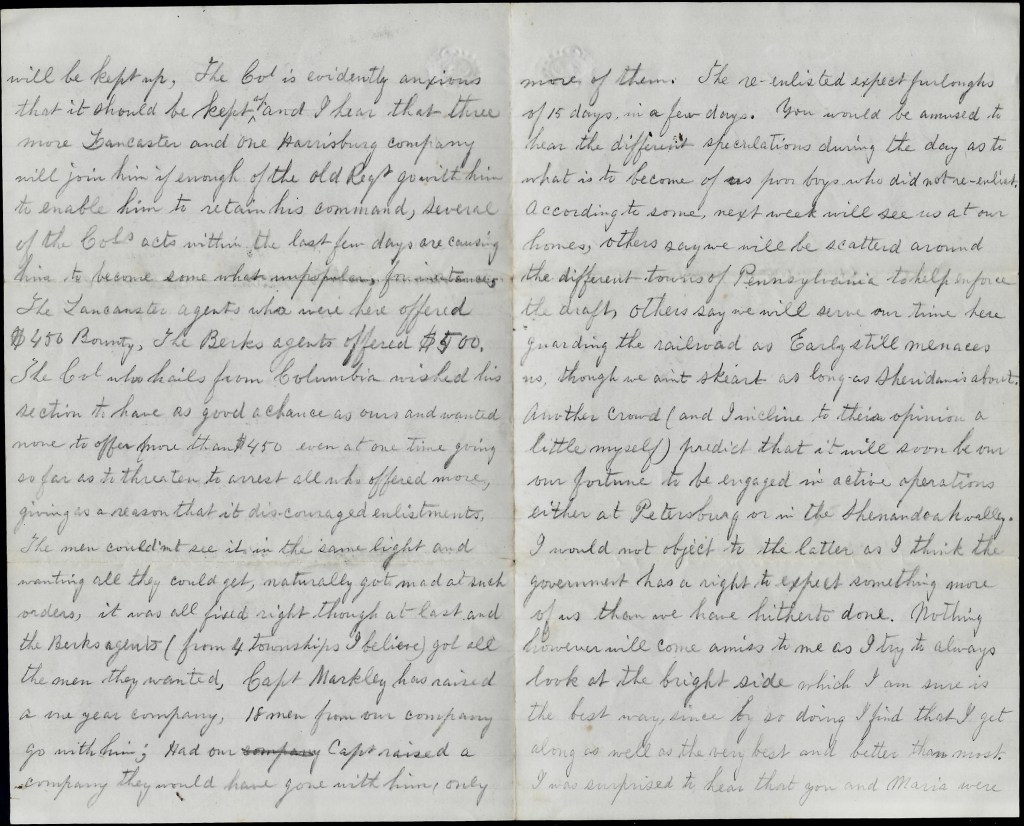 will be kept up, The Col is evidently anxious
that it should be kept up and I hear that three
more Lancaster and one Harrisburg company
will join him if enough of the old Regt go with him
to enable him to retain his command, Several
of the Cols acts within the last few days are causing
him to become some what unpopular, for instances
The Lancauster agents who were here offered
$450 Bounty, The Berks agents offered $500.
The Col who hails from Columbia wished his
section to have as good a chance as ours and wanted
none to offer more than $450 even at one time going
so far as to threaten to arrest all who offered more,
giving as a reason that it dis-couraged enlistments.
The men could'nt see it in the same light and
wanting all they could get, naturally got mad at such
orders, it was all fixed right though at last and
the Berks agents (from 4 townships I believe) got all
the men they wanted, Capt Markley has raised
a one year company, 18 men from our company
go with him; Had our company Capt raised a
company they would have gone with him, only
more of them. The re-enlisted expect furloughs
of 15 days, in a few days. You would be amused to
hear the different speculations during the day as to
what is to become of us poor boys who did not re-enlist.
According to some, next week will see us at our
homes, others say we will be scatterd around
the different towns of Pennsylvania to help enforce
the draft, others say we will serve our time here
guarding the railroad as Early still menaces
us, though we aint skeart as long as Sheridan is about.
Another crowd (and I incline to their opinion a
little myself) predict that it will soon be our
our fortune to be engaged in active operations
either at Petersburg or in the Shenandoah valley.
I would not object to the latter as I think the
government has a right to expect something more
of us than we have hitherto done. Nothing
however will come amiss to me as I try to always
look at the bright side which I am sure is
the best way, since by so doing I find that I get
along as well as the very best and better than most.
I was surprised to hear that you and Maria were